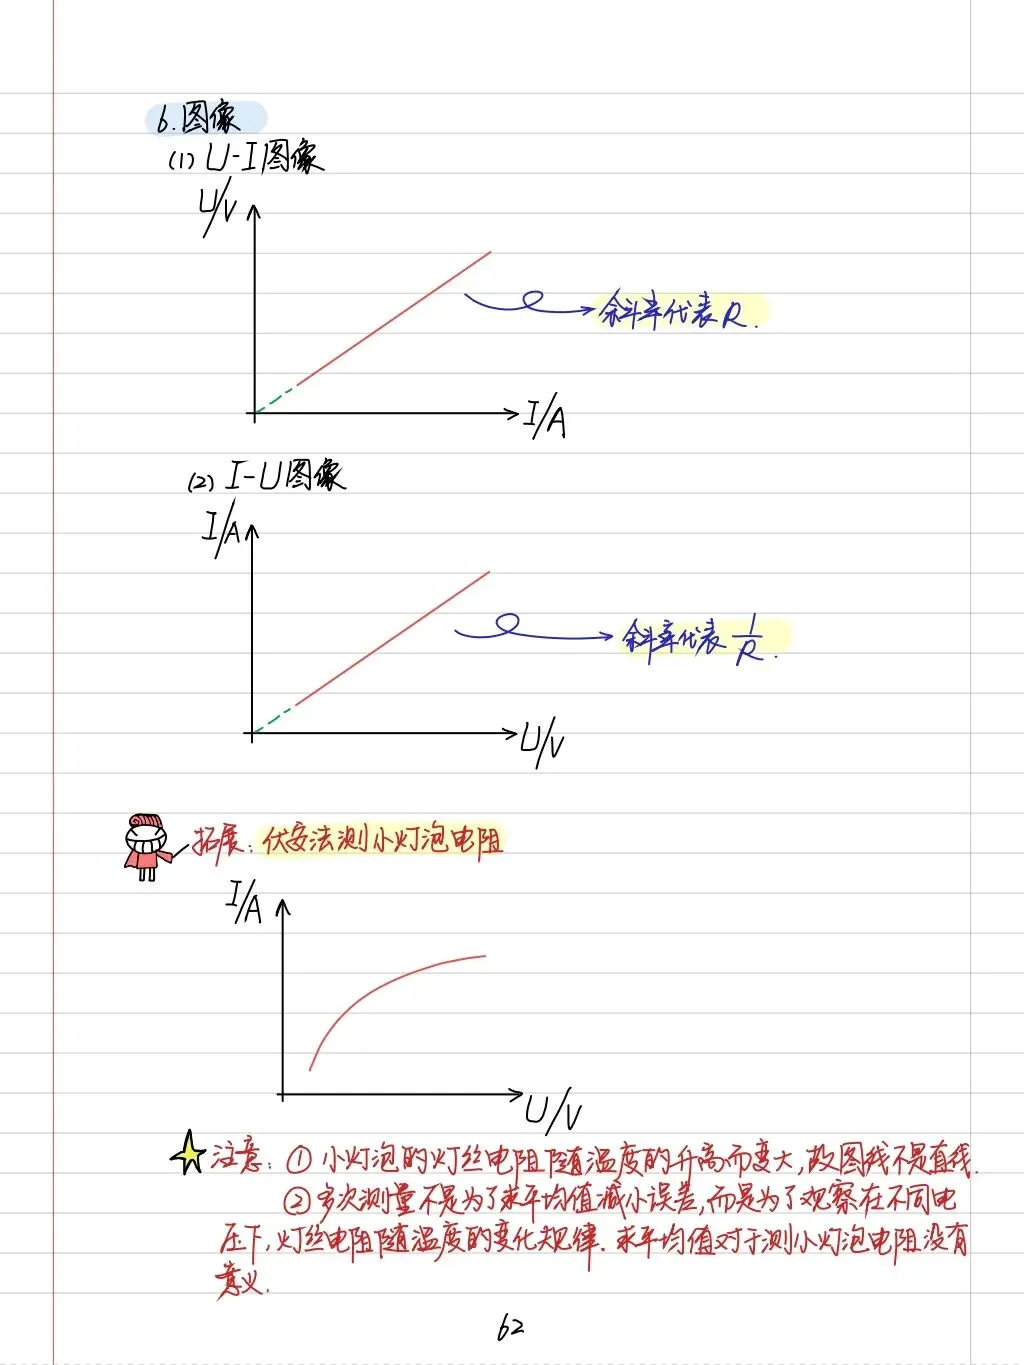 6.图像
(1) U-I图像
U/V
斜率代表R.
I/A
(2) I-U图像
I/A
斜率代表 1/R.
U/V
拓展:伏安法测小灯泡电阻
I/A
U/V
注意:①小灯泡的灯丝电阻随温度的升高而变大,故图线不是直线.
②多次测量不是为了求平均值减小误差,而是为了观察在不同电
压下,灯丝电阻随温度的变化规律.求平均值对于测小灯泡电阻没有
意义.
62